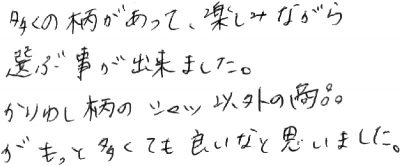 多くの柄があって、楽しみながら
選ぶ事が出来ました。
かりゆし柄のシャツ以外の商品
がもっと多くても良いなと思いました。